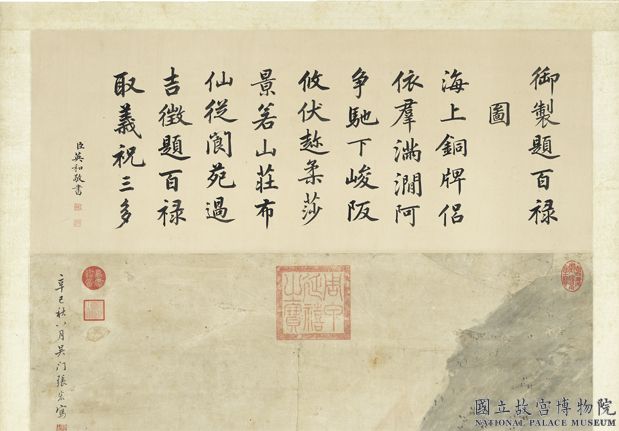 御製題百祿
圖
海上銅牌侶
依羣滿澗阿
争馳下峻阪
攸伏趂柔莎
景若山莊布
仙從閬苑過
吉徵題百禄
取義祝三多
臣英和敬書
周甲
延禧
之寶
辛巳秋八月吴门張宏寫
國立故宮博物院
NATIONAL PALACE MUSEUM